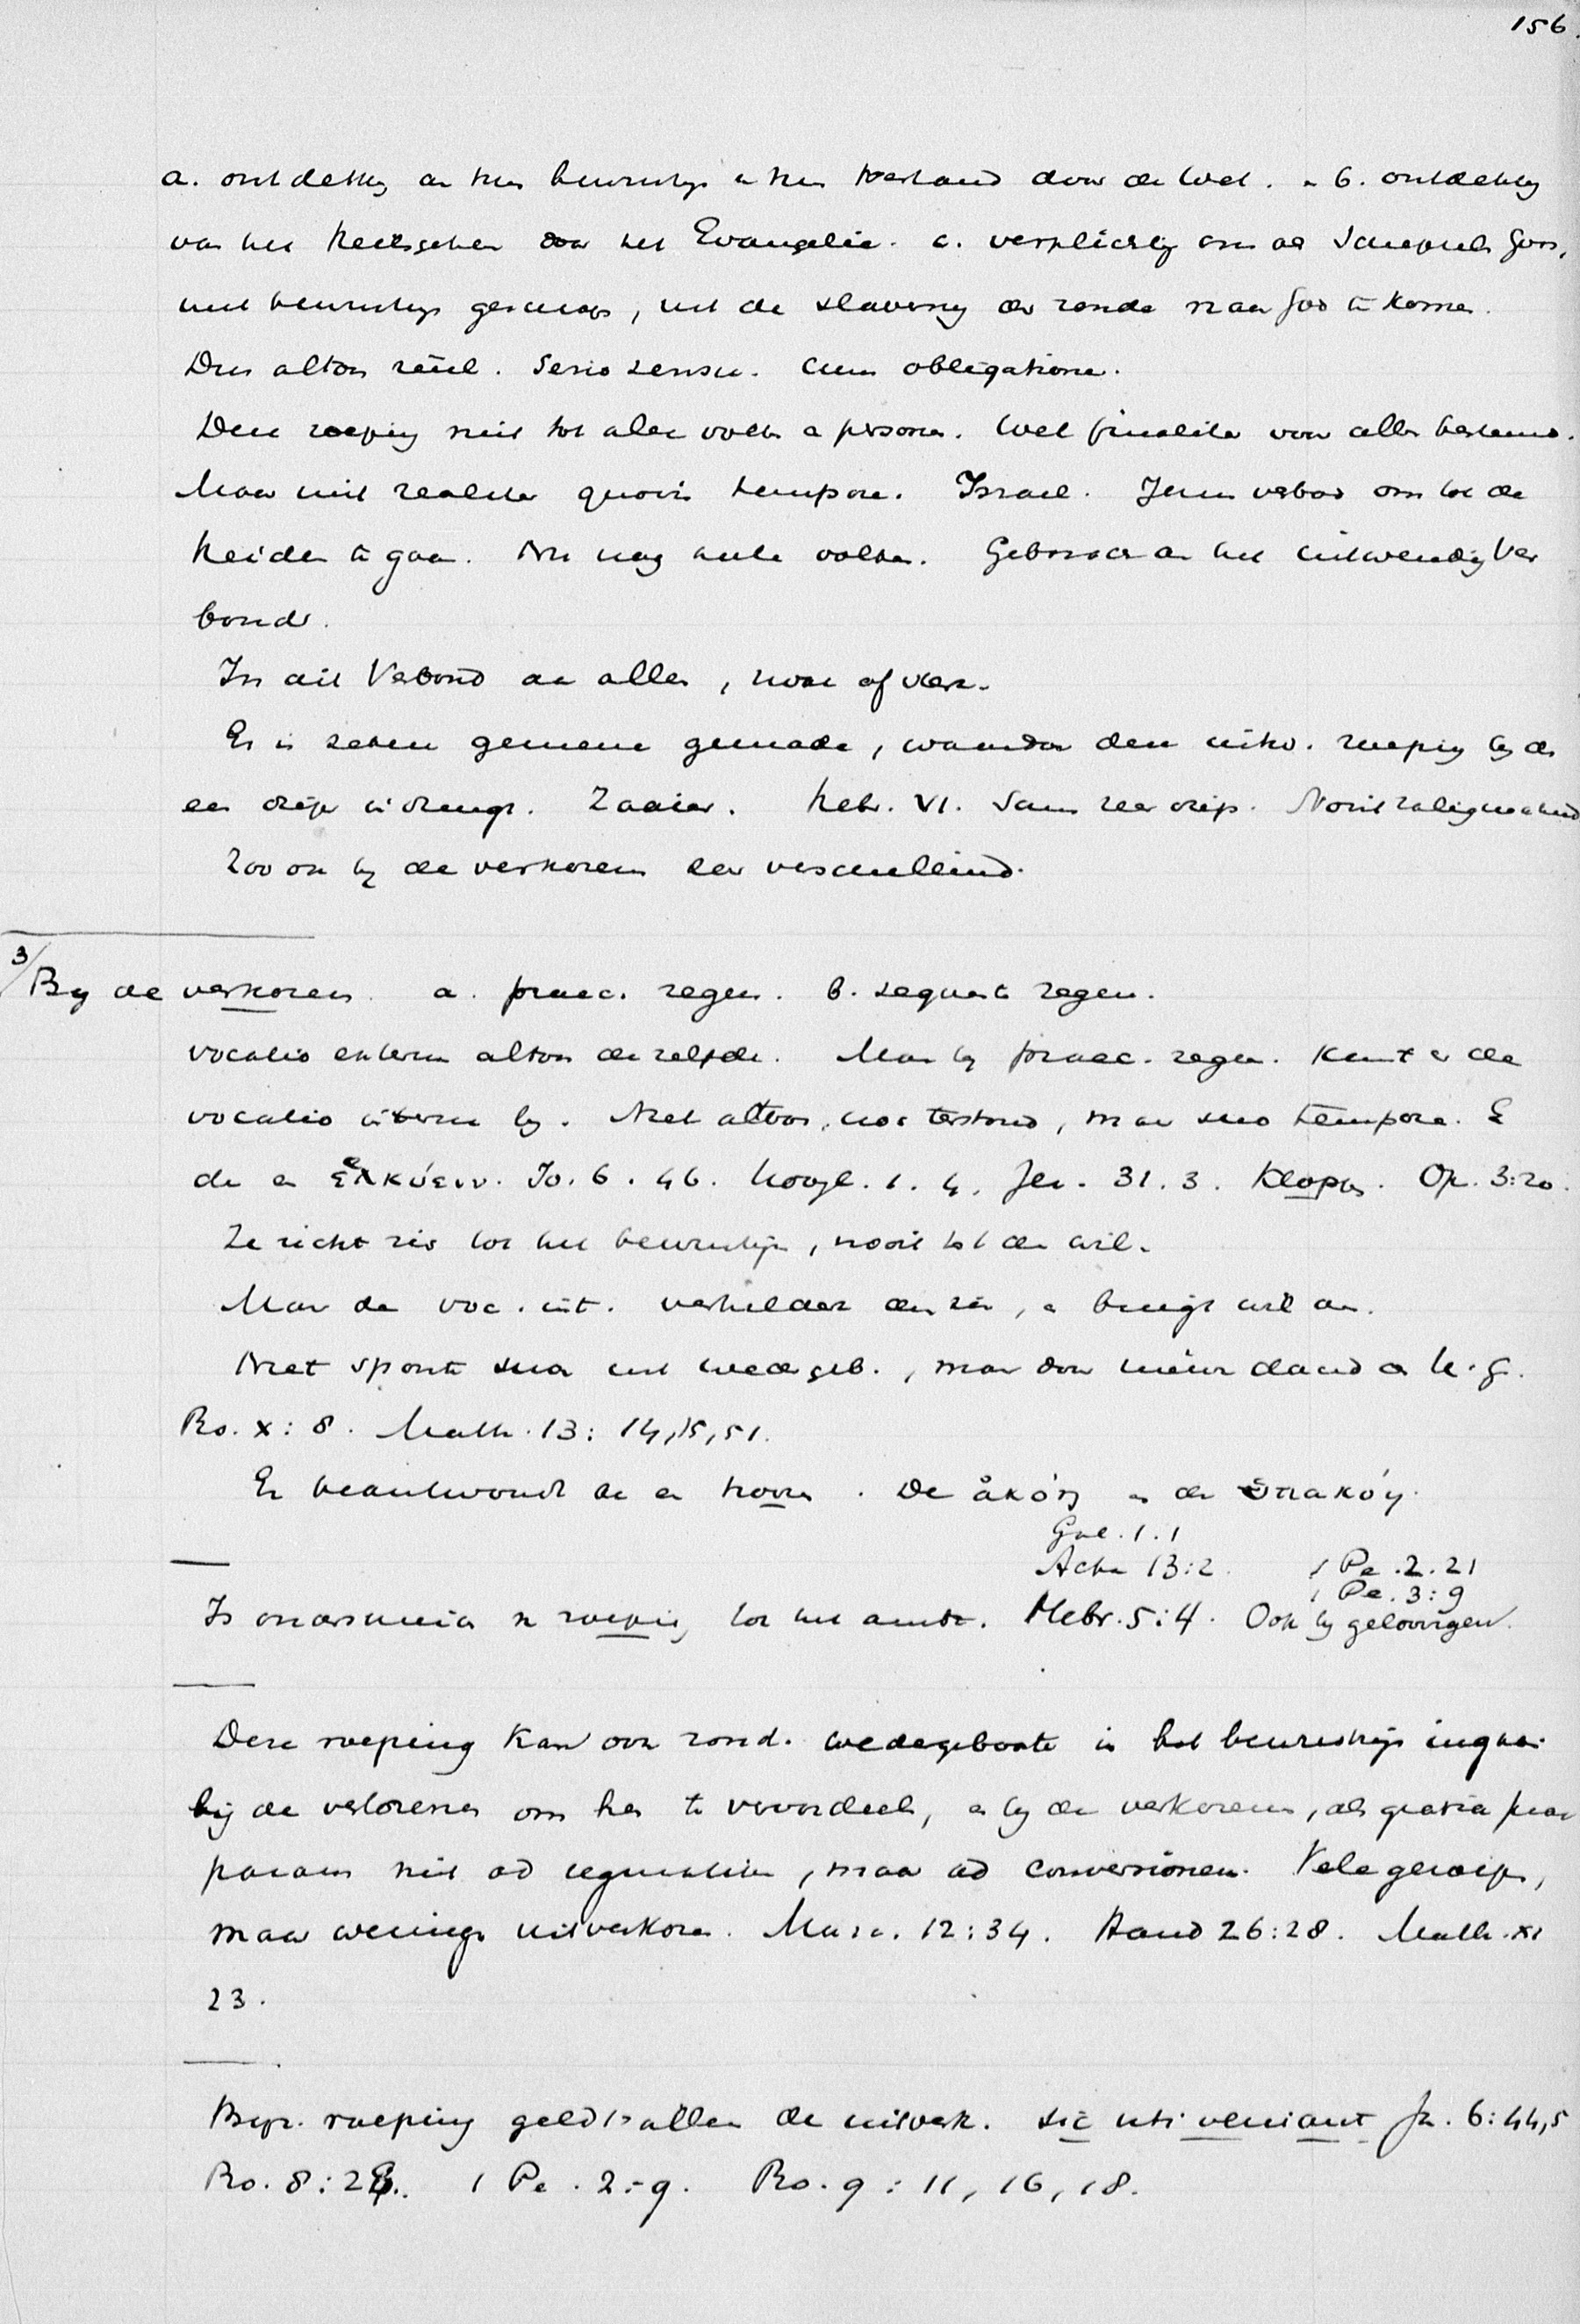 156.
a. ontdekking aan hun bewustzijn en hun toestand door de Wet. - b. ontdekking
van het heilsgeheim door het Evangelie. c. verplichting om als schepsel Gods,
met bewustzijn geschapen, uit de slavernij der zonde naar God te komen.
Dus altoos reëel. Serio sensu. cum obligatione.
Deze roeping niet tot alle volken en personen. Wel finaliter voor allen bestemd.
Maar niet realiter quovis tempore. Israel. Jezus verbod om tot de
heiden te gaan. Nu nog vele volken. Geboorte en het uitwendig Ver
bond.
In dit Verbond aan allen, noch of
Er is zekere gemeene gratie, waardoor deze uitw. roeping bij de
een dieper indringt. Zaaier. Hebr. VI. Soms zeer diep. Nooit zaligmakend
Zoo ook bij de verkorenen zeer verschillend.
3/ Bij de verkorenen. a. praec. regen. b. sequente regen.
vocatio externa altoos dezelfde. Maar bij praec. regen. komt er de
vocatio interna bij. Niet altoos, noch terstond, maar suo tempore. E
de en ἑλκύειν. Jo. 6. 46. Hoogl. 1. 4. Jer. 31. 3. Kloppen. Op. 3:20.
Ze richt zich tot het bewustzijn, nooit tot den wil.
Maar de voc. int. verheldert den zin, en buigt wil om.
Niet sponte sua uit wedergeb., maar door nieuwe daad en H. G.
Ro. X: 8. Matth. 13: 14, 15, 51.
Er beantwoordt de en hooren. De ἀκόη en de ὑπακόη.
Gal. 1. 1
Acta 13:2. 1 Pe. 2. 21
1 Pe. 3:9
Is onderscheiden v roeping tot het ambt. Hebr. 5:4. Ook bij geloovigen.
Deze roeping kan ook zond. wedergeboorte in het bewustzijn ingaan
bij de verlorenen om hen te veroordeelen, en bij de verkorenen, als gratia prae
parans niet ad regenerationem, maar ad conversionem. Vele geroepen,
maar weinige uitverkoren. Marc. 12:34. Hand 26:28. Matth. XI
23.
Bijz. roeping geldt allen de uitverk. sic uti veniant Jo. 6:44,5
Ro. 8:28. 1 Pe. 2:9. Ro. 9: 11, 16, 18.